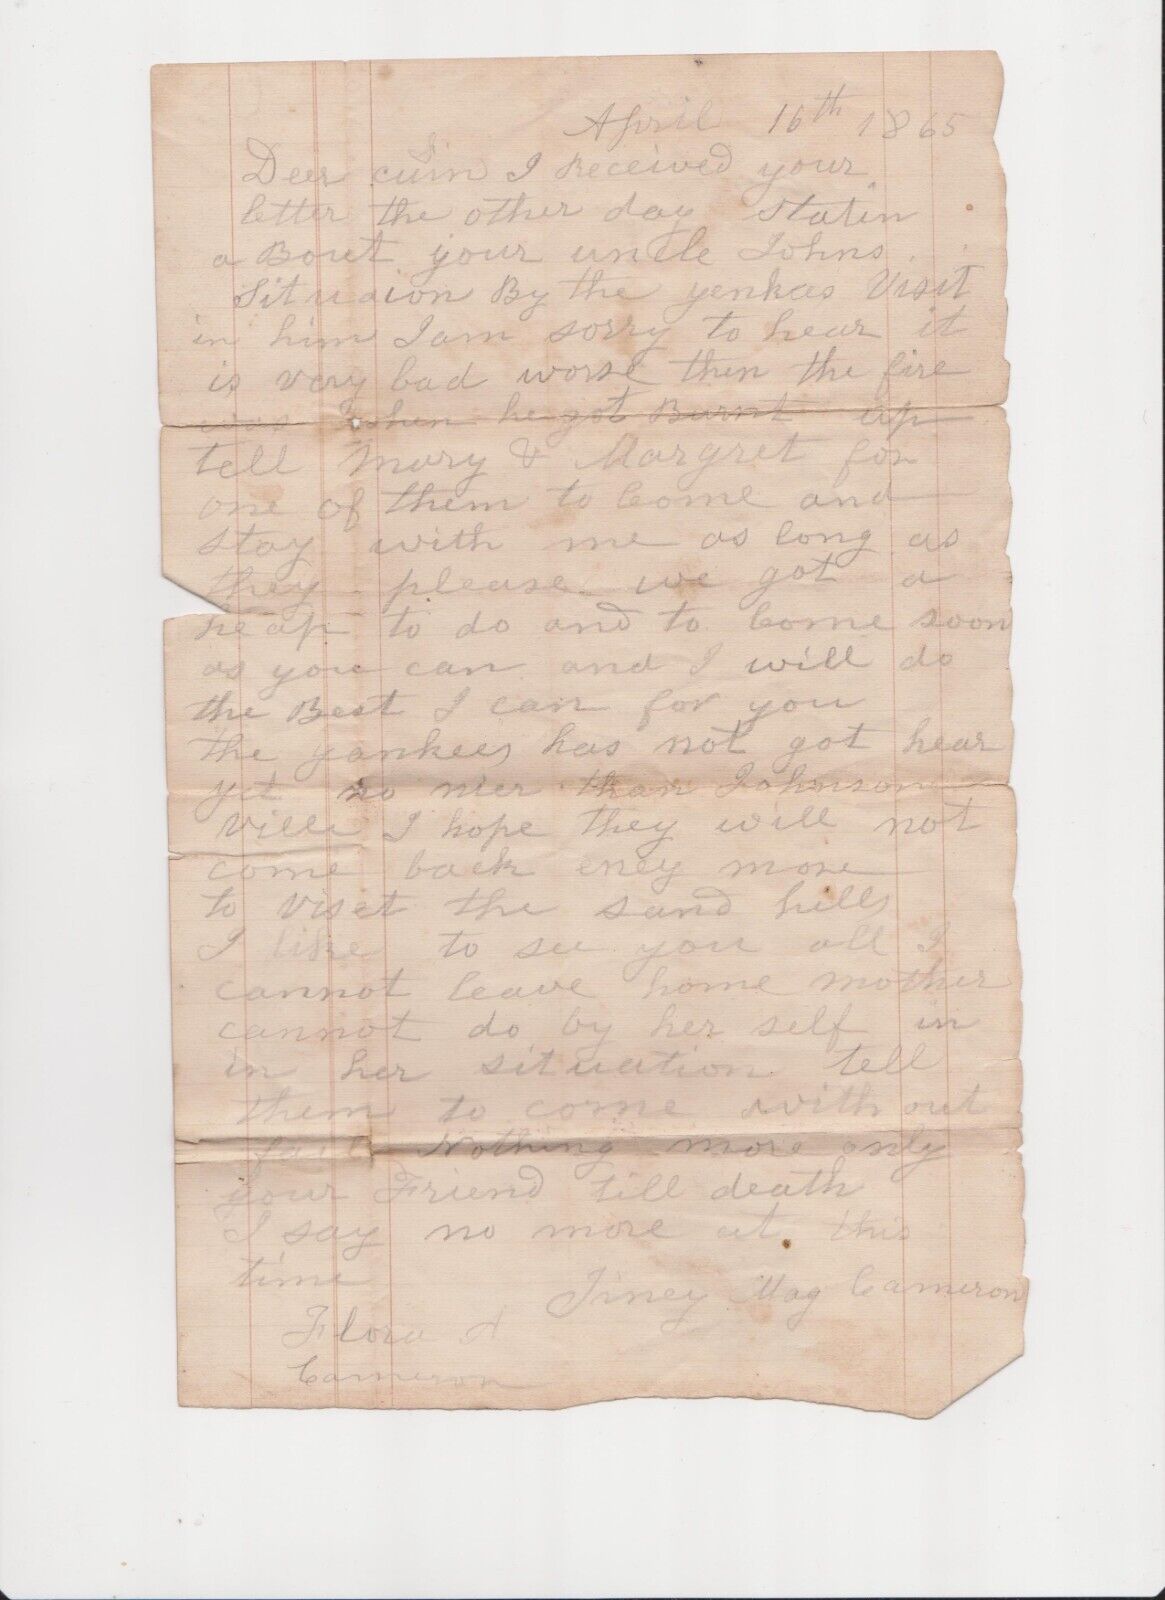 April 16th 1865
Deer cusin I Received your
letter the other day statin
a Bout your uncle Johns
Situaion By the yenkas Visit
in him I am sorry to hear it
is very bad worse then the fire
was when he got Burnt up
tell Mary & Margret for
one of them to Come and
stay with me as long as
they please we got a
heap to do and to Come soon
as you can and I will do
the Best I can for you
the yankees has not got hear
yet no nier than Johnson
Ville I hope they will not
come back eney more
to viset the sand hills
I like to see you all I
cannot leave home mother
cannot do by her self in
in her situation tell
them to come with out
fail Nothing more only
your Friend till death
I say no more at this
time
Jiney Mag Cameron
Flora A
Cameron